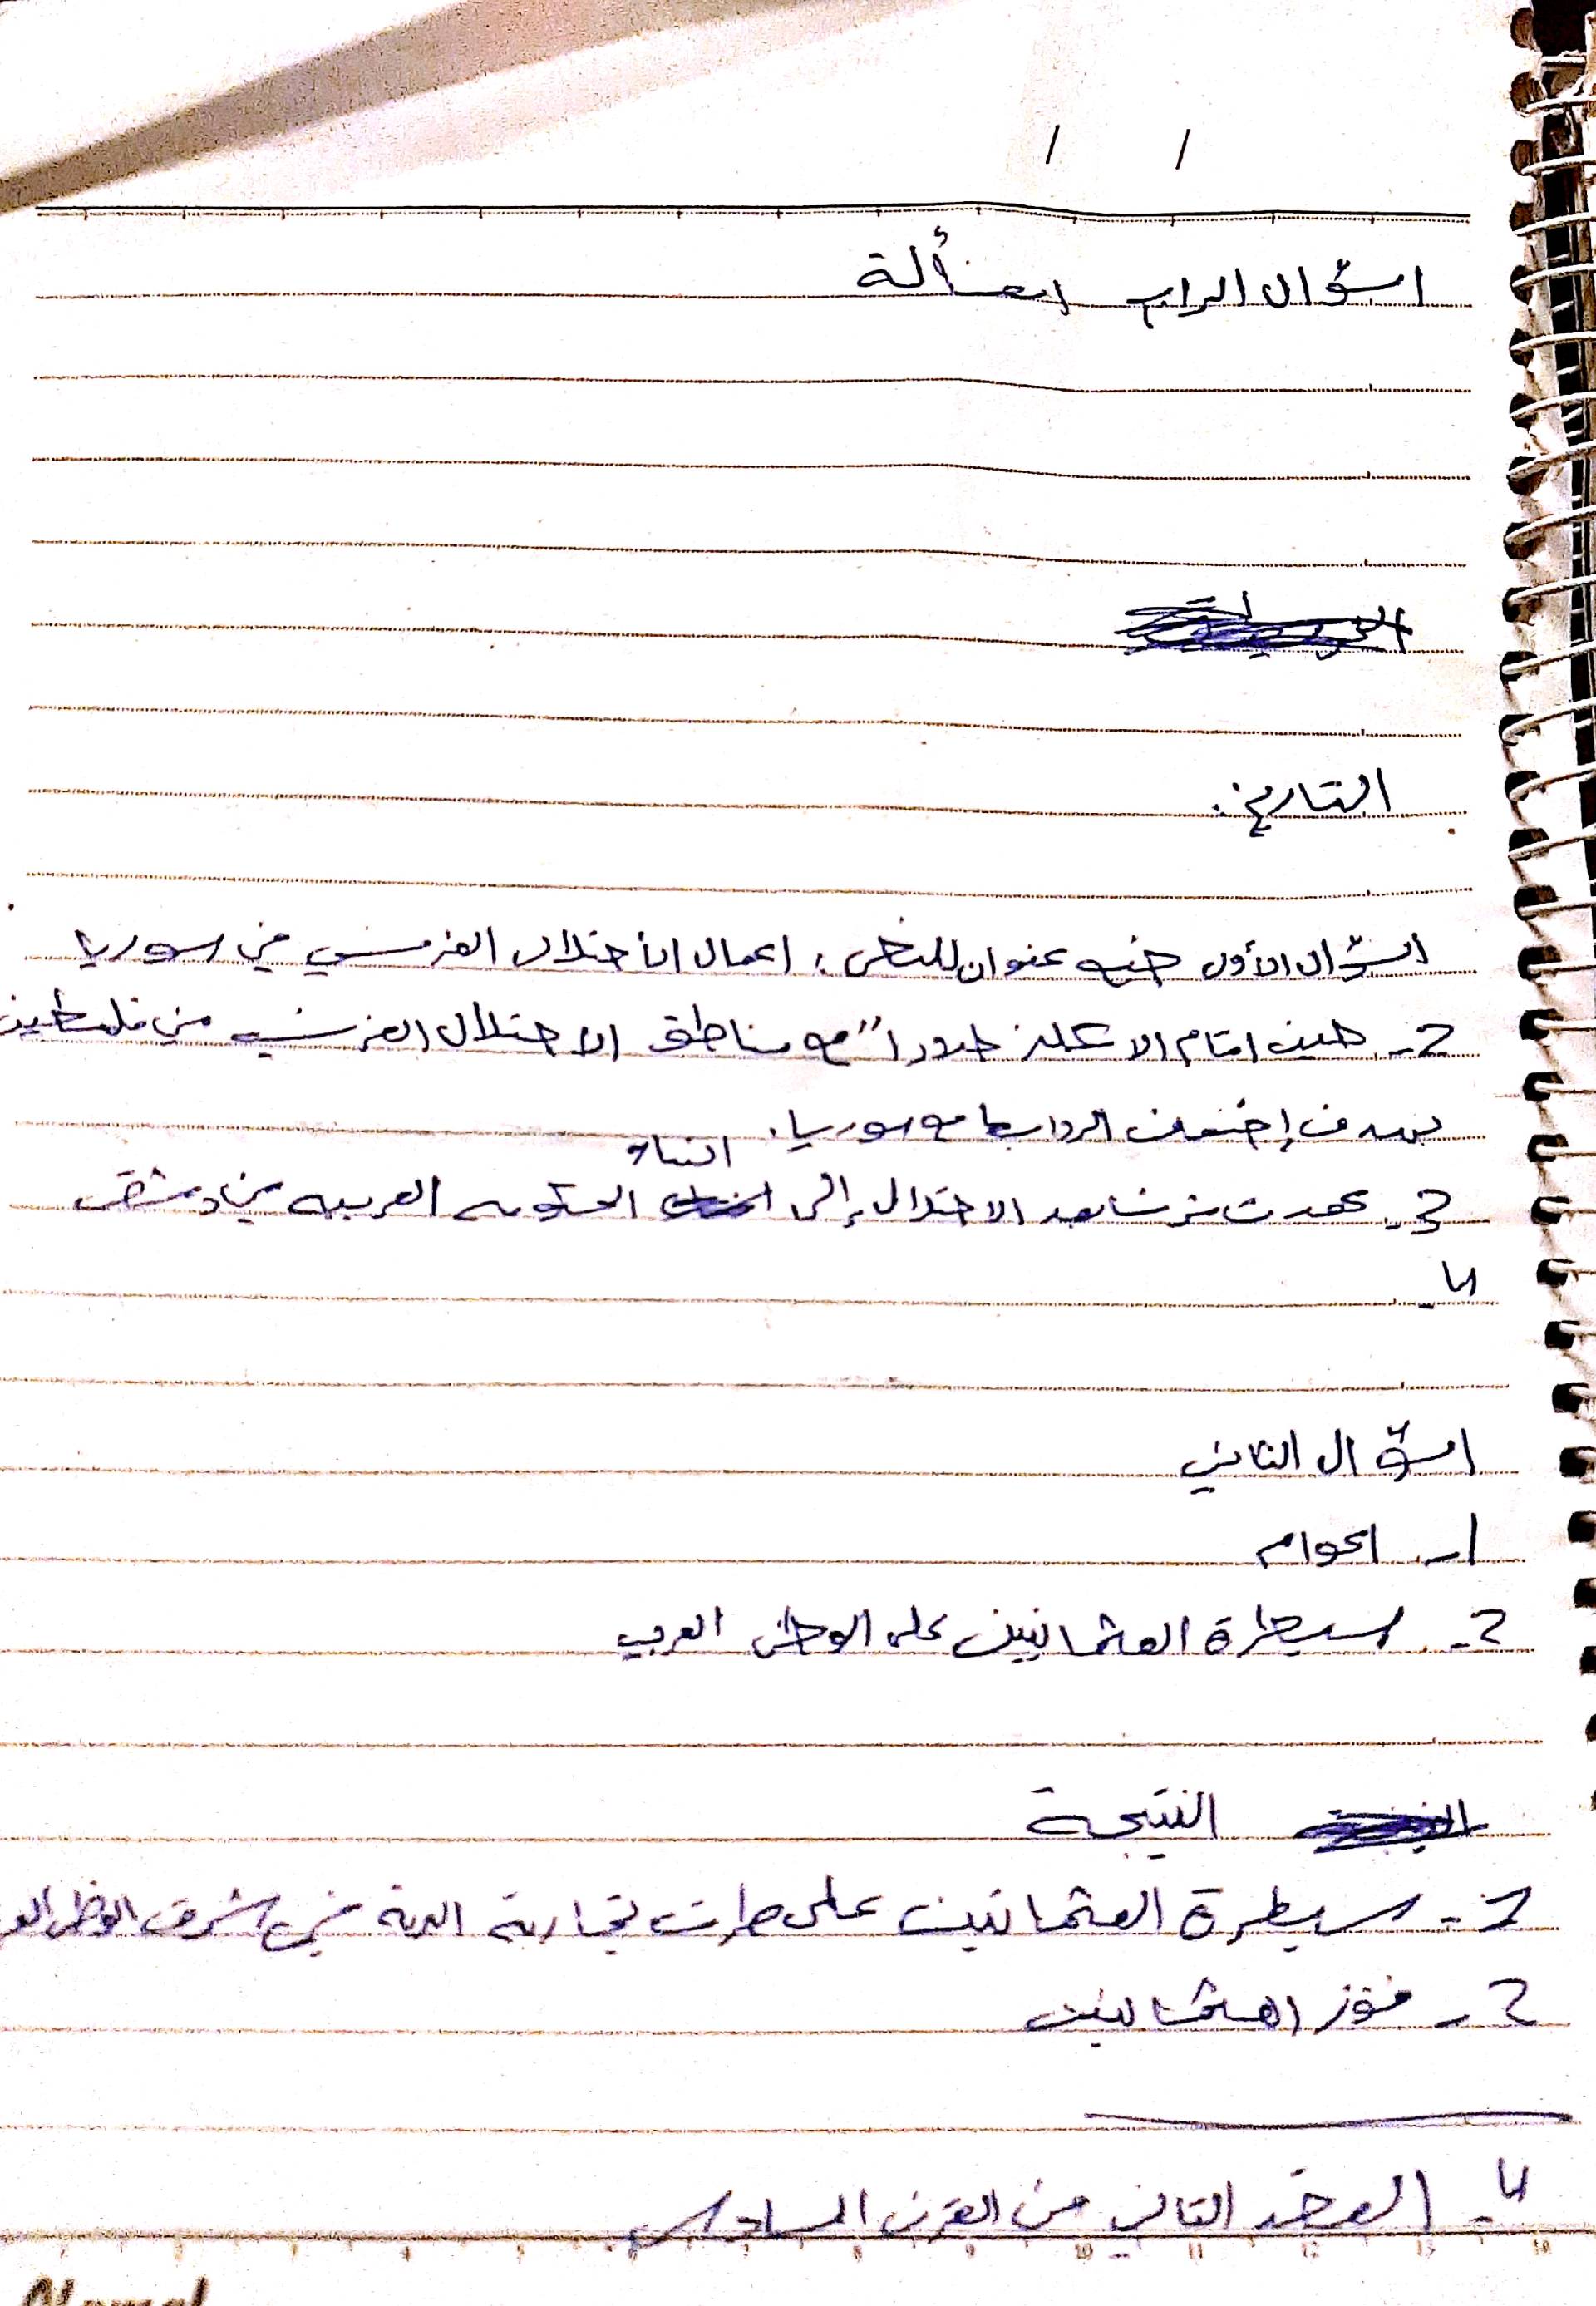 / /
السؤال الرابع المسألة
التاريخ:
السؤال الأول ضع عنوان للنص: اعمال الاحتلال الفرنسي في سوريا
2- حين اقام الانكليز حدوداً مع مناطق الاحتلال الفرنسي من فلسطين
بهدف إضعاف الروابط مع سوريا.
3- عمدت فرنسا بعد الاحتلال إلى الغاء الحكومة العربيه في دمشق
4-
السؤال الثاني
1- اعوام
2- سيطرة العثمانيين على الوطن العربي
النتيجة
2- سيطرة العثمانيين على طرق تجارية البرية في شرق الوطن العر
2- فوز العثمانيين
4- العقد الثاني من القرن السادس